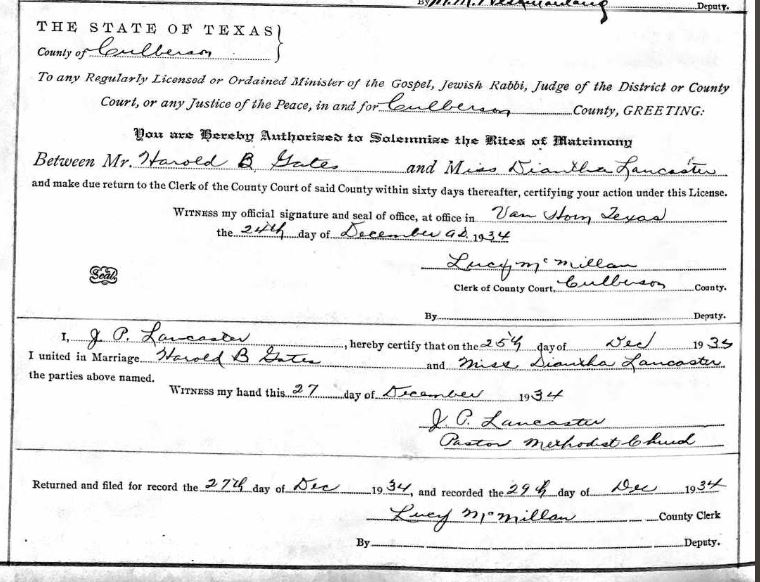 By M. M. Deputy.
THE STATE OF TEXAS }
County of Culberson
To any Regularly Licensed or Ordained Minister of the Gospel, Jewish Rabbi, Judge of the District or County
Court, or any Justice of the Peace, in and for Culberson County, GREETING:
You are Hereby Authorized to Solemnize the Rites of Matrimony
Between Mr. Harold B Gates and Miss Diantha Lancaster
and make due return to the Clerk of the County Court of said County within sixty days thereafter, certifying your action under this License.
WITNESS my official signature and seal of office, at office in Van Horn Texas
the 24th day of December A.D. 1934
Lucy McMillan
Seal
Clerk of County Court, Culberson County.
By Deputy.
I, J. P. Lancaster, hereby certify that on the 25th day of Dec 1934
I united in Marriage Harold B Gates and Miss Diantha Lancaster
the parties above named.
WITNESS my hand this 27 day of December 1934
J. P. Lancaster
Pastor Methodist Church
Returned and filed for record the 27th day of Dec 1934, and recorded the 29th day of Dec 1934
Lucy McMillan County Clerk
By Deputy.